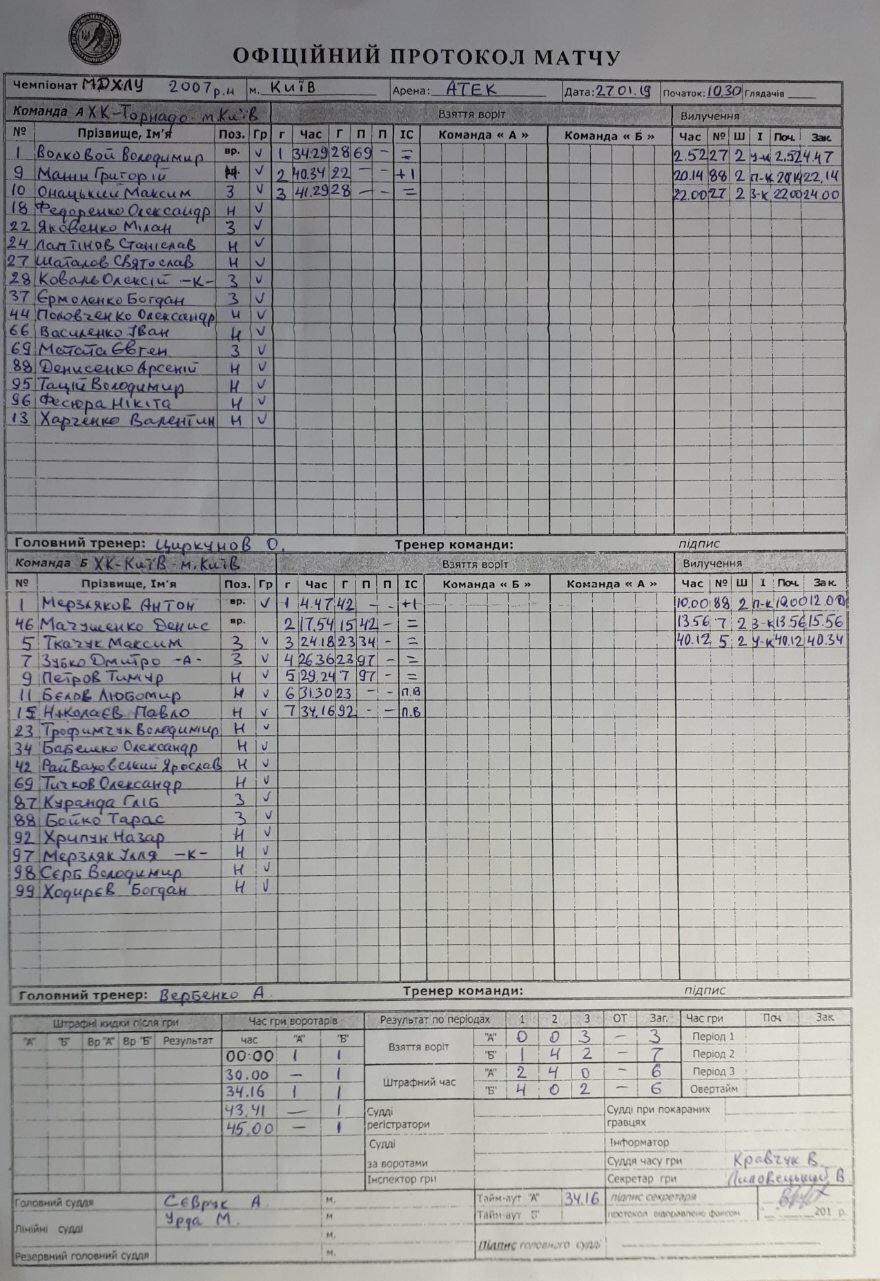 ОФІЦІЙНИЙ ПРОТОКОЛ МАТЧУ
Чемпіонат МДХЛУ 2007р.н м. Київ Арена: АТЕК Дата: 27.01.19 Початок: 10.30 Глядачів
Команда А ХК-Торнадо м.Київ Взяття воріт Вилучення
№ Прізвище, Ім'я Поз. Гр г Час Г П П ІС Команда « А » Команда « Б » Час № Ш І Поч. Зак.
1 Волковой Володимир вр. v 1 34.29 28 69 - = 2.52 27 2 у-и 2.52 4.47
9 Манн Григорій v 2 40.34 22 - - +1 20.14 88 2 п-к 20.14 22,14
10 Онацький Максим З v 3 41.29 28 - - = 22.00 27 2 з-к 22.00 24.00
18 Федоренко Олександр Н v
22 Яковенко Мілан З v
24 Лаптінов Станіслав Н v
27 Шаталов Святослав Н v
28 Коваль Олексій -К- З v
37 Єрмоленко Богдан З v
44 Половченко Олександр Н v
66 Василенко Іван Н v
69 Матата Євген З v
88 Денисенко Арсеній Н v
95 Тацій Володимир Н v
96 Фесюра Нікіта Н v
13 Харченко Валентин Н v
Головний тренер: Циркунов О. Тренер команди: підпис
Команда Б ХК-Київ-м.Київ Взяття воріт Вилучення
№ Прізвище, Ім'я Поз. Гр г Час Г П П ІС Команда « Б » Команда « А » Час № Ш І Поч. Зак.
1 Мерзляков Антон вр. v 1 4.47 42 - - +1 10.00 88 2 п-к 10.00 12.00
46 Мачушенко Денис вр. 2 17.54 15 42 - = 13.56 7 2 з-к 13.56 15.56
5 Ткачук Максим З v 3 24.18 23 34 - = 40.12 5 2 у-к 40.12 40.34
7 Зубко Дмитро -А- З v 4 26.36 23 97 - =
9 Петров Тимур Н v 5 29,24 7 97 - =
11 Бєлов Любомир Н v 6 31.30 23 - - п.в
15 Ніколаєв Павло Н v 7 34.16 92 - - п.в
23 Трофимчук Володимир Н v
34 Бабешко Олександр Н v
42 Райваховський Ярослав Н v
69 Тичков Олександр Н v
87 Куранда Гліб З v
88 Бойко Тарас З v
92 Хрипун Назар Н v
97 Мерзляк Ілля -К- Н v
98 Сєрб Володимир Н v
99 Ходирєв Богдан Н v
Головний тренер: Вербенко А. Тренер команди: підпис
Штрафні кидки після гри Час гри воротарів Результат по періодах 1 2 3 ОТ Заг. Час гри Поч Зак.
"А" "Б" Вр "А" Вр "Б" Результат час "А" "Б" Взяття воріт "А" 0 0 3 - 3 Період 1
00:00 1 1 "Б" 1 4 2 - 7 Період 2
30.00 - 1 Штрафний час "А" 2 4 0 - 6 Період 3
34.16 1 1 "Б" 4 0 2 - 6 Овертайм
43.41 - 1 Судді регістратори Судді при покараних гравцях
45.00 - 1 Судді за воротами Інформатор
Суддя часу гри Кравчук В.
Інспектор гри Секретар гри Липовецький В
Головний суддя Сєврук А. м. Тайм-аут "А" 34.16 підпис секретаря
Лінійні судді Урда М. м Тайм-аут "Б" протокол відправлено факсом 201 р.
м.
Резервний головний суддя м. Підпис головного судді